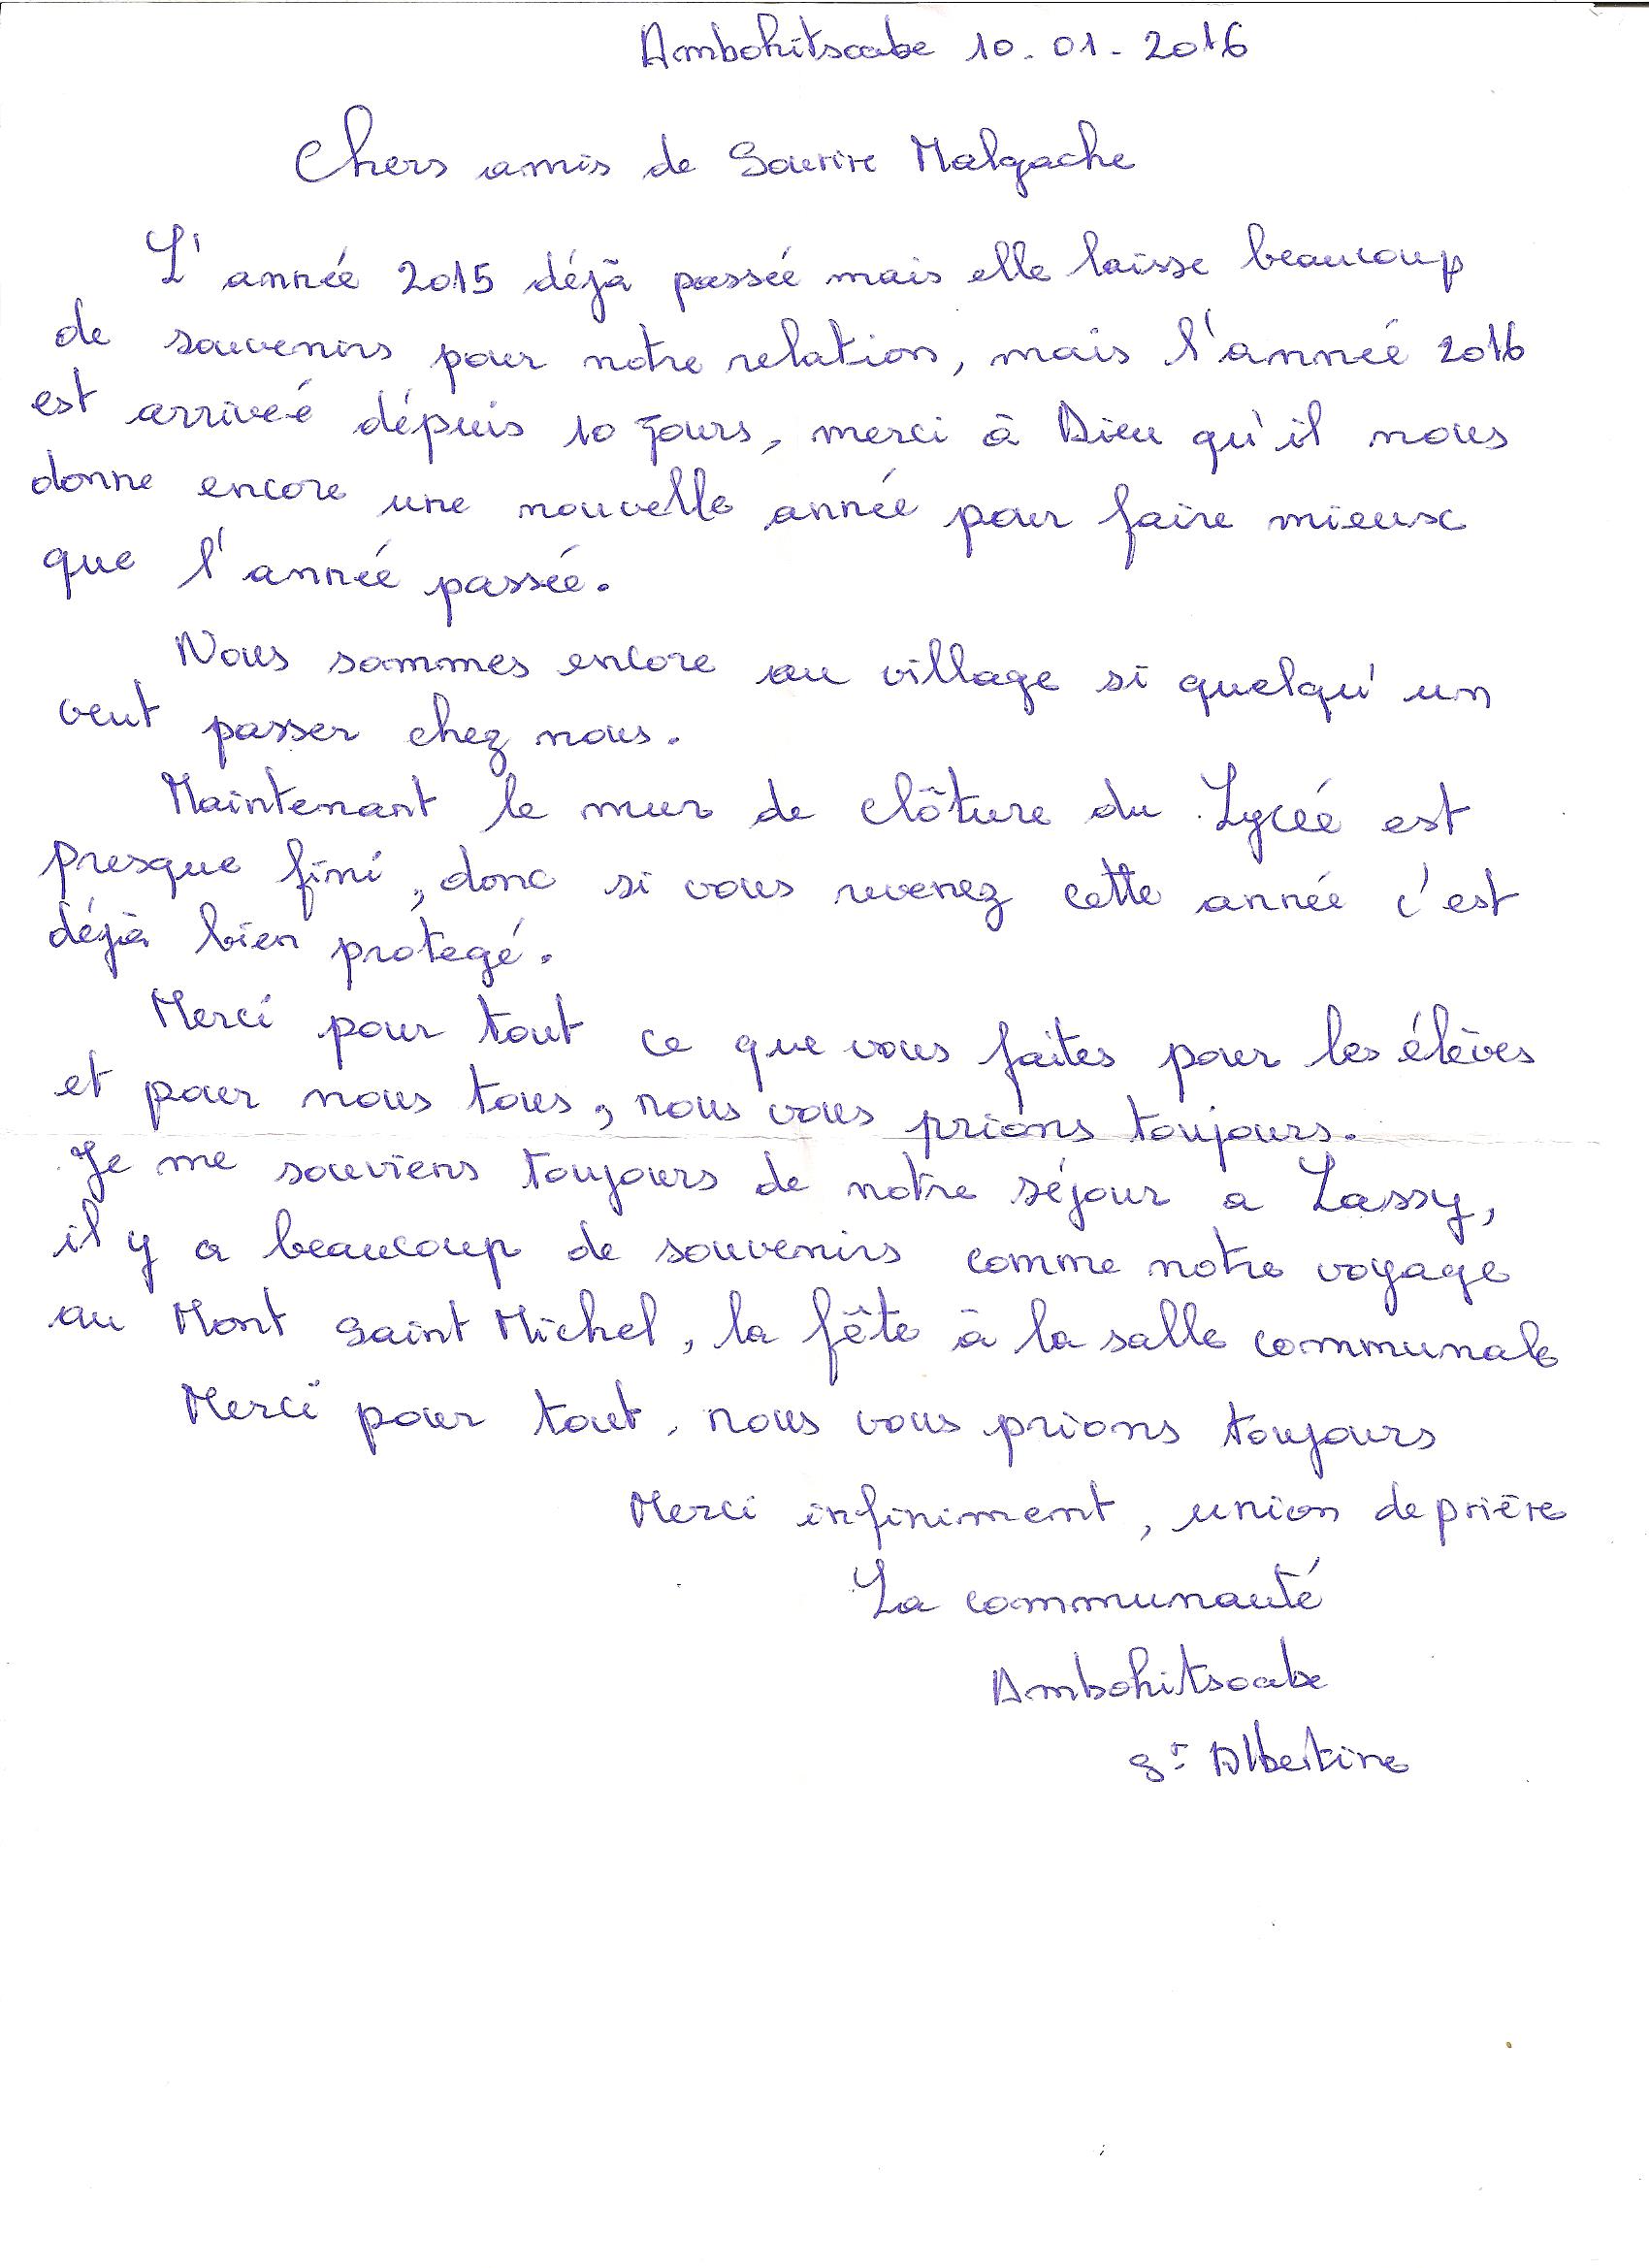 Ambohitsoabe 10-01-2016
Chers amis de Sourire Malgache
L'année 2015 déjà passée mais elle laisse beaucoup
de souvenirs pour notre relation, mais l'année 2016
est arrivée dépuis 10 jours, merci à Dieu qu'il nous
donne encore une nouvelle année pour faire mieux
que l'année passée.
Nous sommes encore au village si quelqu'un
veut passer chez nous.
Maintenant le mur de clôture du Lycée est
presque fini, donc si vous revenez cette année c'est
déjà bien protegé.
Merci pour tout ce que vous faites pour les élèves
et pour nous tous, nous vous prions toujours.
Je me souviens toujours de notre séjour a Lassy,
il y a beaucoup de souvenirs comme notre voyage
au Mont Saint Michel, la fête à la salle communale
Merci pour tout, nous vous prions toujours
Merci infiniment, union de prière
La communauté
Ambohitsoabe
Sr Albertine